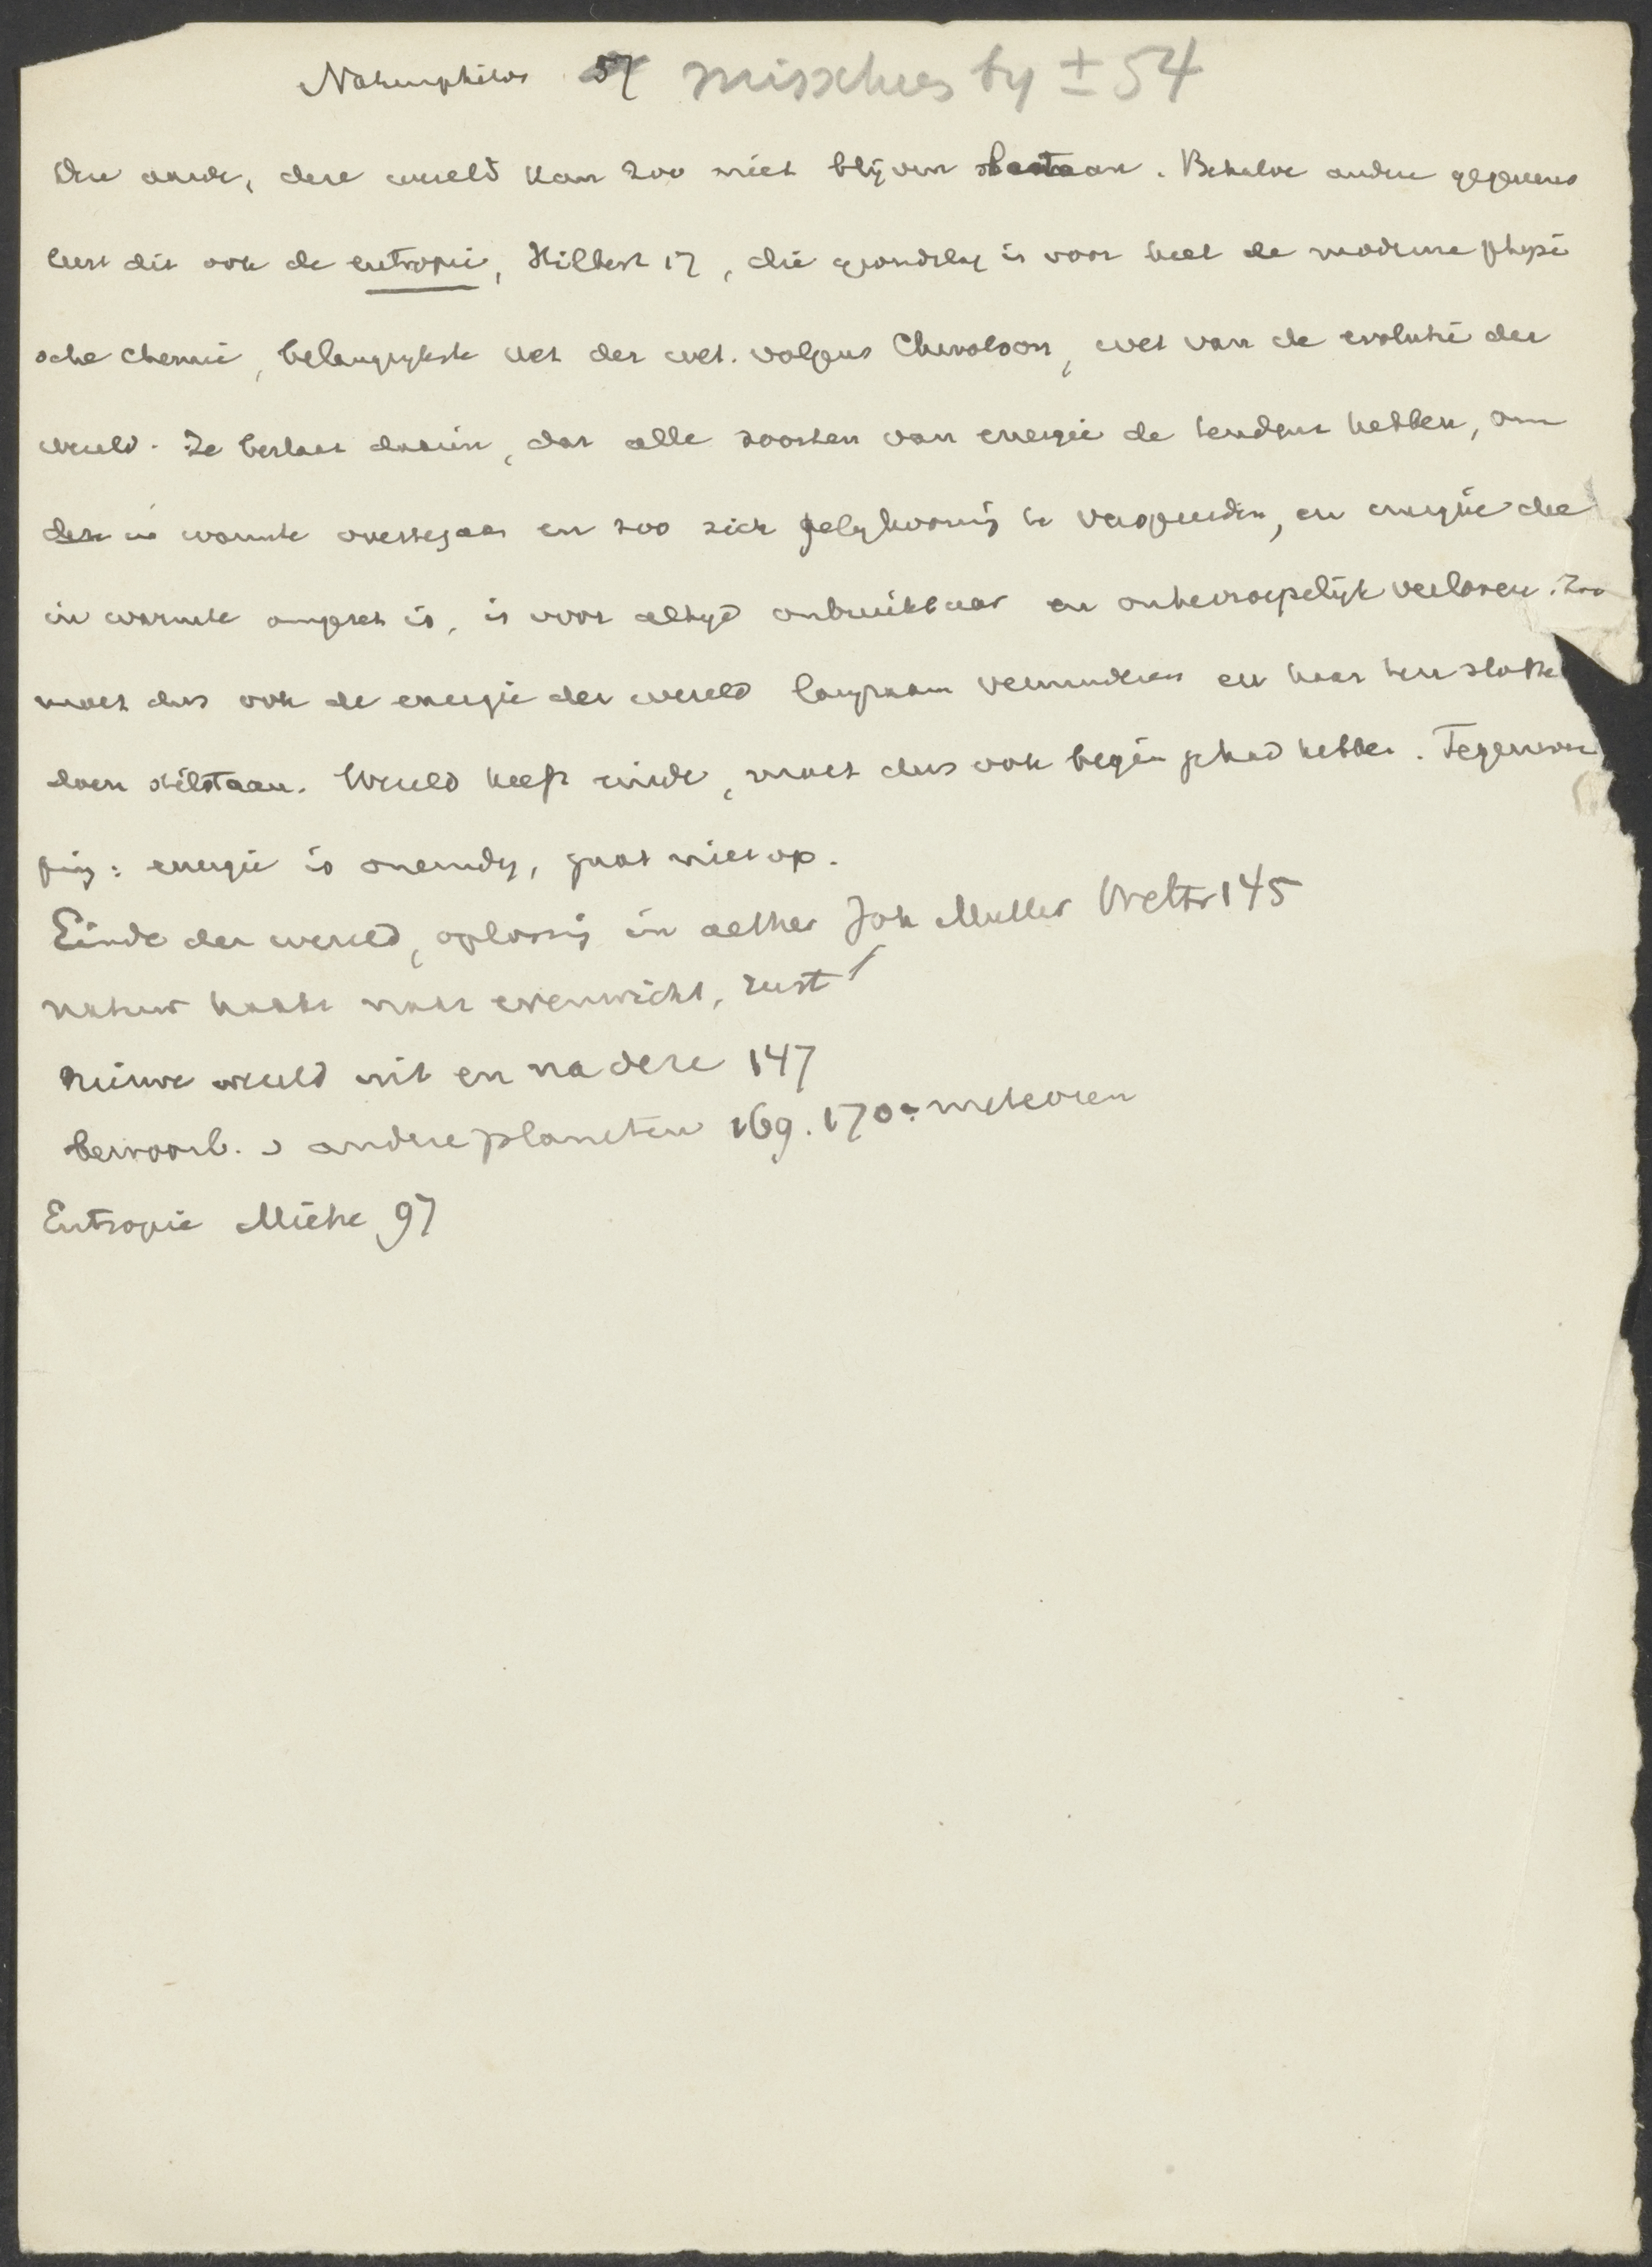 Naturphilos 57 misschien by ± 54
Deze aarde, deze wereld kan zoo niet blijven bestaan. Behalve andere gegevens
leert dit ook de entropie, Hilbert 17, die grondslag is voor heel de moderne physi
sche chemie, belangrykste wet der wet. volgens Chwolson, wet van de evolutie der
wereld. Ze bestaat daarin, dat alle soorten van energie de tendens hebben, om
in warmte overtegaan en zoo zich gelykvormig te verspreiden, en energie die
in warmte omgezet is, is voor altyd onbruikbaar en onherroepelijk verloren. Zoo
moet dus ook de energie der wereld langzaam verminderen en haar ten slotte
doen stilstaan. Wereld heeft einde, moet dus ook begin gehad hebben. Tegenwer
ping: energie is oneindig, gaat niet op.
Einde der wereld, oplossing in aether Joh Muller Weltr 145
natuur haakt naar evenwicht, rust
nieuwe wereld uit en na deze 147
bewoonb. v andere planeten 169. 170 meteoren
Entropie Miehe 97